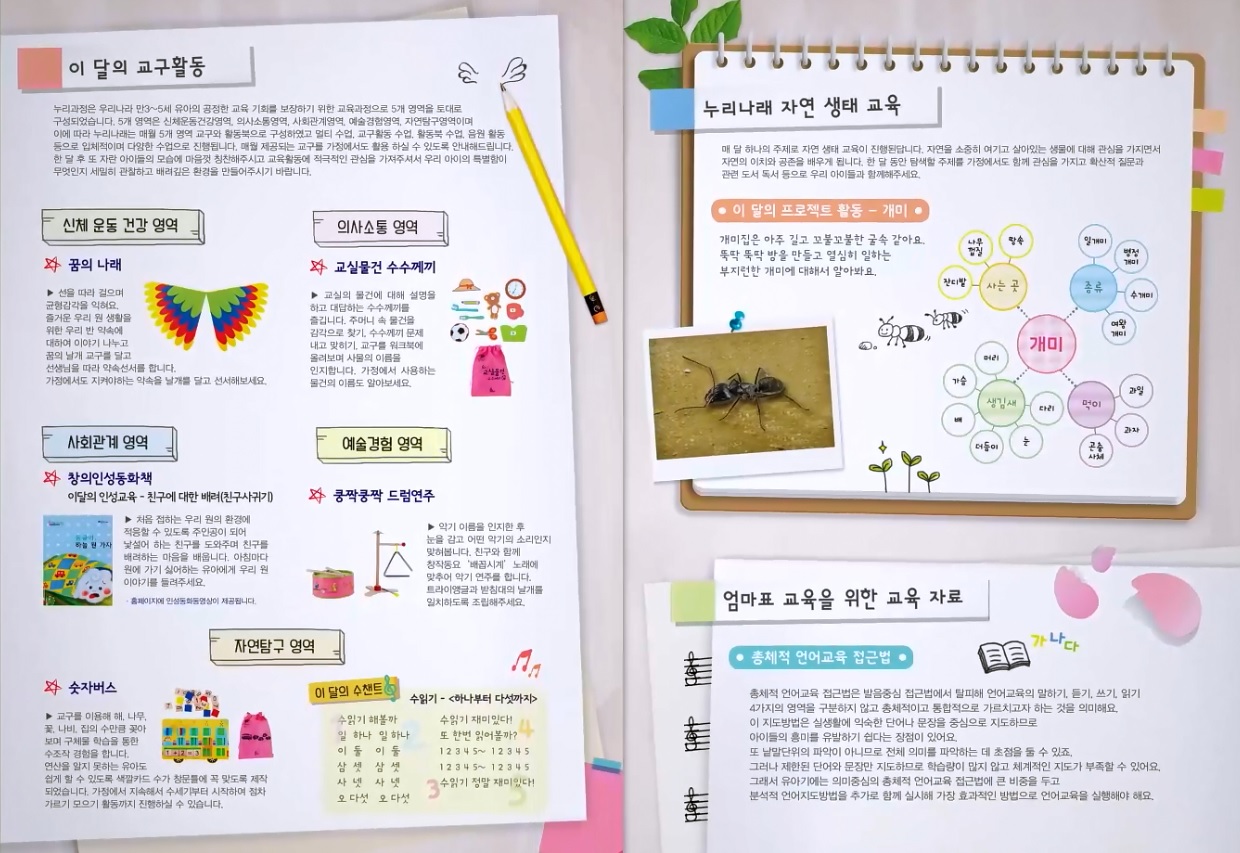 이 달의 교구활동
누리과정은 우리나라 만3~5세 유아의 공정한 교육 기회를 보장하기 위한 교육과정으로 5개 영역을 토대로
구성되었습니다. 5개 영역은 신체운동건강영역, 의사소통영역, 사회관계영역, 예술경험영역, 자연탐구영역이며
이에 따라 누리나래는 매월 5개 영역 교구와 활동북으로 구성하였고 멀티 수업, 교구활동 수업, 활동북 수업, 음원 활동
등으로 입체적이며 다양한 수업으로 진행됩니다. 매월 제공되는 교구를 가정에서도 활용 하실 수 있도록 안내해드립니다.
한 달 후 또 자란 아이들의 모습에 마음껏 칭찬해주시고 교육활동에 적극적인 관심을 가져주셔서 우리 아이의 특별함이
무엇인지 세밀히 관찰하고 배려깊은 환경을 만들어주시기 바랍니다.
신체 운동 건강 영역
꿈의 나래
▶ 선을 따라 걸으며
균형감각을 익혀요.
즐거운 우리 원 생활을
위한 우리 반 약속에
대하여 이야기 나누고
꿈의 날개 교구를 달고
선생님을 따라 약속선서를 합니다.
가정에서도 지켜야하는 약속을 날개를 달고 선서해보세요.
의사소통 영역
교실물건 수수께끼
▶ 교실의 물건에 대해 설명을
하고 대답하는 수수께끼를
즐깁니다. 주머니 속 물건을
감각으로 찾기, 수수께끼 문제
내고 맞히기, 교구를 워크북에
올려보며 사물의 이름을
인지합니다. 가정에서 사용하는
물건의 이름도 알아보세요.
사회관계 영역
창의인성동화책
이달의 인성교육 - 친구에 대한 배려(친구사귀기)
▶ 처음 접하는 우리 원의 환경에
적응할 수 있도록 주인공이 되어
낯설어 하는 친구를 도와주며 친구를
배려하는 마음을 배웁니다. 아침마다
원에 가기 싫어하는 유아에게 우리 원
이야기를 들려주세요.
· 홈페이지에 인성동화동영상이 제공됩니다.
예술경험 영역
쿵짝쿵짝 드럼연주
▶ 악기 이름을 인지한 후
눈을 감고 어떤 악기의 소리인지
맞혀봅니다. 친구와 함께
창작동요 '배꼽시계' 노래에
맞추어 악기 연주를 합니다.
트라이앵글과 받침대의 날개를
일치하도록 조립해주세요.
자연탐구 영역
숫자버스
▶ 교구를 이용해 해, 나무,
꽃, 나비, 집의 수만큼 꽂아
보며 구체물 학습을 통한
수조작 경험을 합니다.
연산을 알지 못하는 유아도
쉽게 할 수 있도록 색깔카드 수가 창문틀에 꼭 맞도록 제작
되었습니다. 가정에서 지속해서 수세기부터 시작하여 점차
가르기 모으기 활동까지 진행하실 수 있습니다.
이 달의 수챈트
수읽기 - <하나부터 다섯까지>
수읽기 해볼까
일 하나 일 하나
이 둘 이 둘
삼 셋 삼 셋
사 넷 사 넷
오 다섯 오 다섯
수읽기 재미있다!
또 한번 읽어볼까?
1 2 3 4 5~ 1 2 3 4 5
1 2 3 4 5~ 1 2 3 4 5
수읽기 정말 재미있다!
누리나래 자연 생태 교육
매 달 하나의 주제로 자연 생태 교육이 진행된답니다. 자연을 소중히 여기고 살아있는 생물에 대해 관심을 가지면서
자연의 이치와 공존을 배우게 됩니다. 한 달 동안 탐색할 주제를 가정에서도 함께 관심을 가지고 확산적 질문과
관련 도서 독서 등으로 우리 아이들과 함께해주세요.
이 달의 프로젝트 활동 - 개미
개미집은 아주 길고 꼬불꼬불한 굴속 같아요.
뚝딱 뚝딱 방을 만들고 열심히 일하는
부지런한 개미에 대해서 알아봐요.
개미
사는 곳
나무
껍질
땅속
잔디밭
종류
일개미
병정
개미
수개미
여왕
개미
생김새
머리
가슴
배
더듬이
눈
다리
먹이
과일
과자
곤충
사체
엄마표 교육을 위한 교육 자료
가나다
총체적 언어교육 접근법
총체적 언어교육 접근법은 발음중심 접근법에서 탈피해 언어교육의 말하기, 듣기, 쓰기, 읽기
4가지의 영역을 구분하지 않고 총체적이고 통합적으로 가르치고자 하는 것을 의미해요.
이 지도방법은 실생활에 익숙한 단어나 문장을 중심으로 지도하므로
아이들의 흥미를 유발하기 쉽다는 장점이 있어요.
또 낱말단위의 파악이 아니므로 전체 의미를 파악하는 데 초점을 둘 수 있죠.
그러나 제한된 단어와 문장만 지도하므로 학습량이 많지 않고 체계적인 지도가 부족할 수 있어요.
그래서 유아기에는 의미중심의 총체적 언어교육 접근법에 큰 비중을 두고
분석적 언어지도방법을 추가로 함께 실시해 가장 효과적인 방법으로 언어교육을 실행해야 해요.